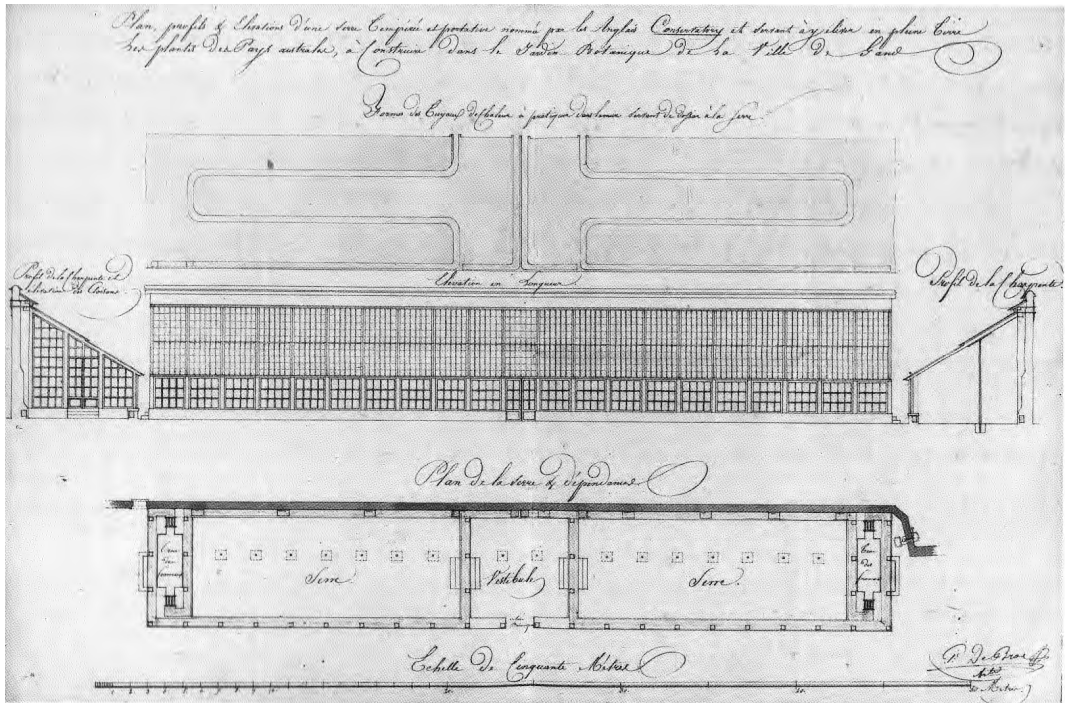 Plan, profils & Elévations d'une serre Tempérée et portative nommé par les Anglais Conservatory et servant à y elever en pleine Terre
les plantes des Pays australes, à Construire dans le Jardin Botanique de La Ville de Gand
Formes des Tuyaux de Chaleur à pratiquer dans le mur servant de dossier à la Serre.
Profil de la Charpente et
élévation des Cloisons
Elévation en Longueur
Profil de la Charpente.
Plan de la serre & dépendances
Serre.
Vestibule
Serre.
Echelle de Cinquante Mètres
10.
20.
30.
40.
50 Mètres.